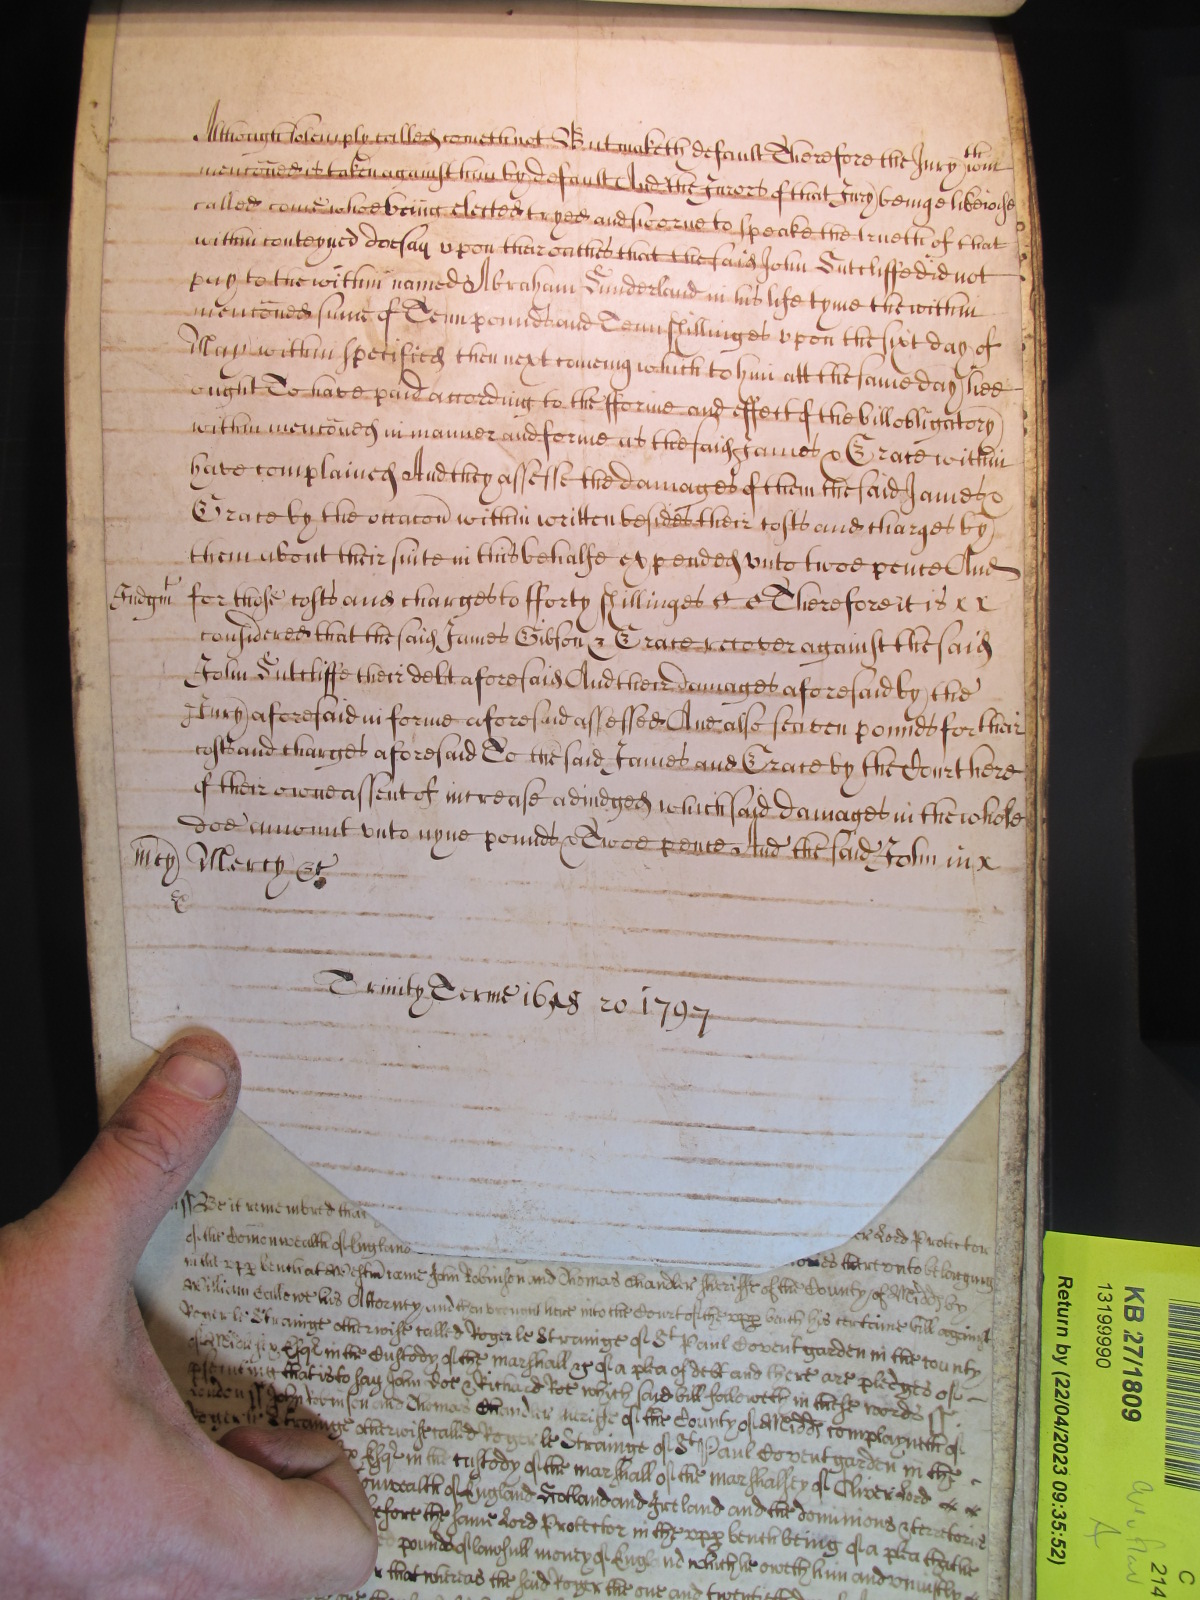 Although solemply called cometh not But maketh default Therefore the Jury wthin
menconed is taken against him by default And the Jurors of that Jury beinge likewise
called come whoe being elected tryed and sworne to speake the trueth of that
within conteyned doe say upon their oathes that the said John Sutcliffe did not
pay to the within named Abraham Sunderland in his life tyme the within
menconed sume of Tenn pounds and Tenn shillinges upon the sixt day of
May within specified then next comeing which to him att the same day hee
ought To have paid according to the fforme and effect of the bill obligatory
within menconed in manner and forme as the said James & Grace within
have complained And they assesse the damages of them the said James &
Grace by the occacon within written besides their costs and charges by
them about their suite in this behalfe expended unto twoe pence And
Judgmt for those costs and charges to fforty shillinges & & Therefore it is x x
considered that the said James Gibson & Grace recover against the said
John Sutcliffe their debt aforesaid And their damages aforesaid by the
Jury aforesaid in forme aforesaid assessed And also seaven pounds for their
costs and charges aforesaid To the said James and Grace by the Court here
of their owne assent of increase adiudged which said damages in the whole
doe amount unto nyne pounds & Twoe pence And the said John in x
Mcy Mercy &c
Trinity Terme 1658 ro 1797
Be it remembred that
of the Comonwealth of England
er Lord Protector
ories thereunto belonging
in the upp bench at Westm came John Robinson and Thomas Chandler Sheriffe of the County of Midds by
William Gallowe his Attorny and then brought here into the Court of the upp bench his certaine bill against
Roger le Strainge otherwise called Roger le Strainge of St Paul Covent garden in the County
of Midds Esqr in the Custody of the marshall &c of a plea of debt and there are pledges of
psecuting that is to say John Doe & Richard Roe which said bill followeth in these words ss
London ss John Robinson and Thomas Chandler Sheriffe of the County of Midds complayneth of
Roger le Strainge otherwise called Roger le Strainge of St Paul Covent garden in the
Esqr in the custody of the marshall of the marshallsey of Oliver Lord
onwealth of England Scotland and Ireland and the dominions & territories
before the same Lord Protector in the upp bench being of a plea that he
pounds of lawfull money of England which he oweth him and uniustly
r that whereas the said Roger the one and twentieth
KB 27/1809
13199990
Return by (22/04/2023 09:35:52)
C
214
A